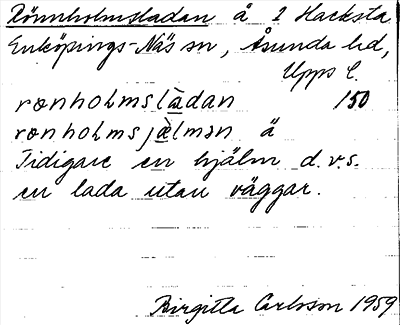 Rönnholmsladan å 2 Hacksta
Enköpings-Näs sn, Åsunda hd,
Upps l.
rœnholmslàdan 150
rœnholmsjæ̀lmən ä
Tidigare en hjälm d.v.s.
en lada utan väggar.
Birgitta Carlsson 1959